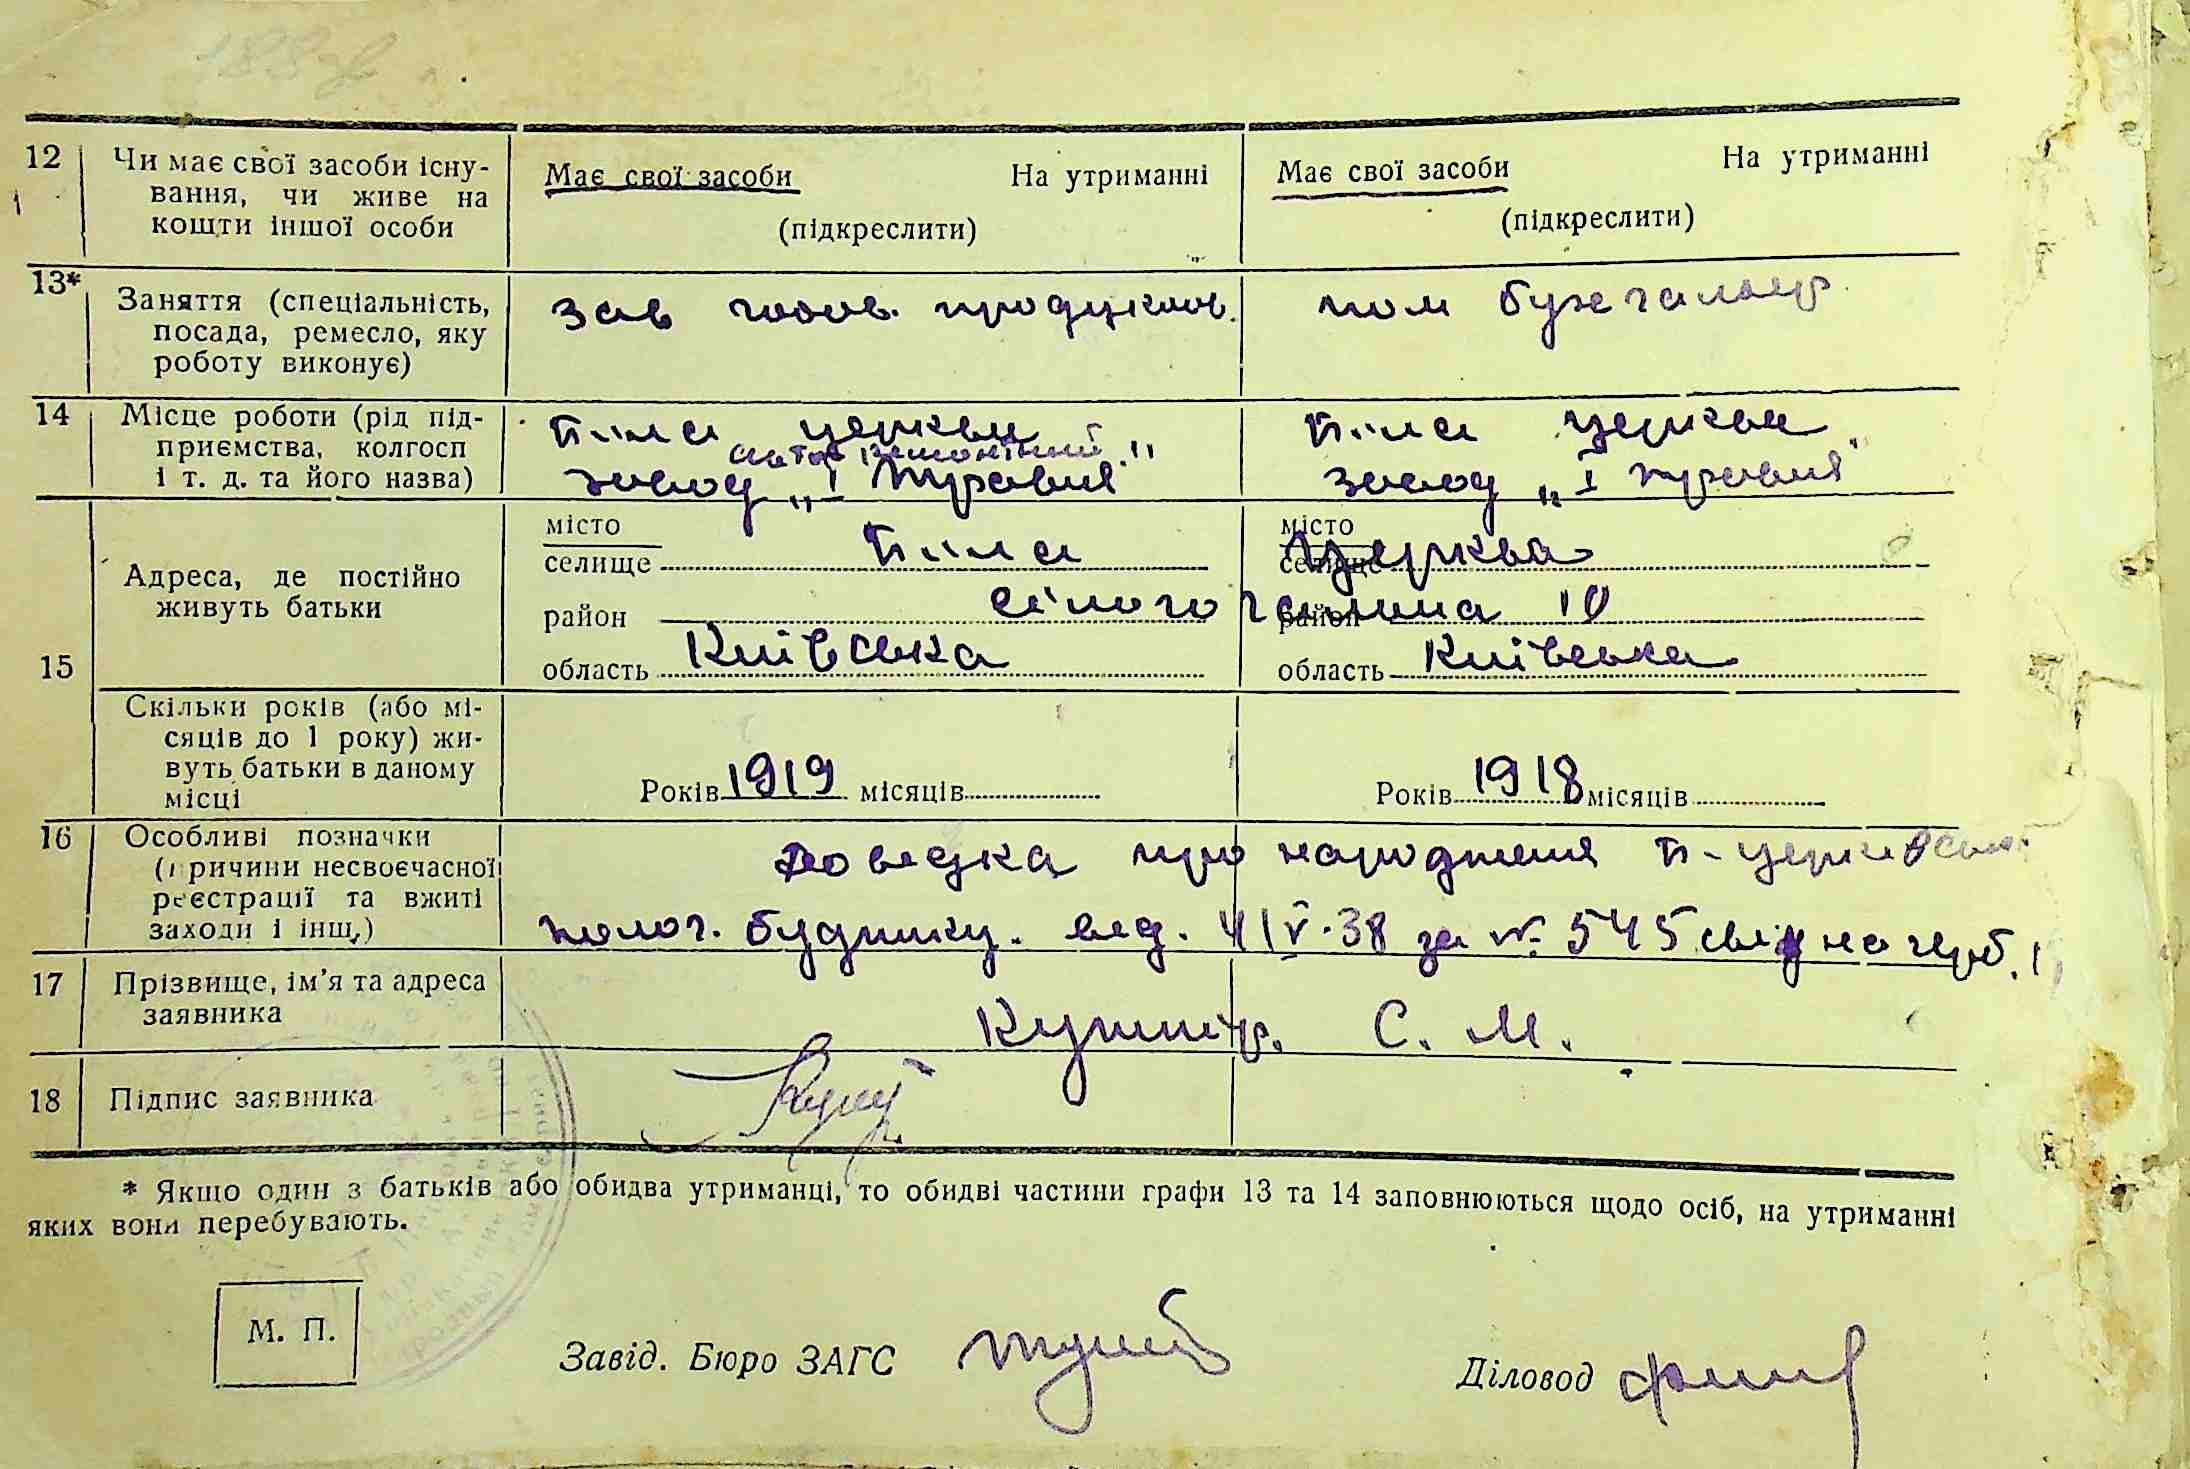 12 Чи має свої засоби існу-
вання, чи живе на
кошти іншої особи
Має свої засоби На утриманні
(підкреслити)
Має свої засоби На утриманні
(підкреслити)
13* Заняття (спеціальність,
посада, ремесло, яку
роботу виконує)
Зав продуктов.
пом бухгальтер
14 Місце роботи (рід під-
приємства, колгосп
і т. д. та його назва)
Біла церква
завод „І Травня"
Біла церква
завод „І травня"
15 Адреса, де постійно
живуть батьки
місто
селище Біла
місто
селище Церква
район
район 10
область Київська
область Київська
Скільки років (або мі-
сяців до 1 року) жи-
вуть батьки в даному
місці
Років 1919 місяців
Років 1918 місяців
16 Особливі позначки
(причини несвоєчасної
реєстрації та вжиті
заходи і інш.)
Довідка про народження Б-церківськ.
полог. будинку. від. 4/V-38 за № 545
17 Прізвище, ім'я та адреса
заявника
Кушнір. С. М.
18 Підпис заявника
* Якщо один з батьків або обидва утриманці, то обидві частини графи 13 та 14 заповнюються щодо осіб, на утриманні
яких вони перебувають.
М. П.
Завід. Бюро ЗАГС
Діловод